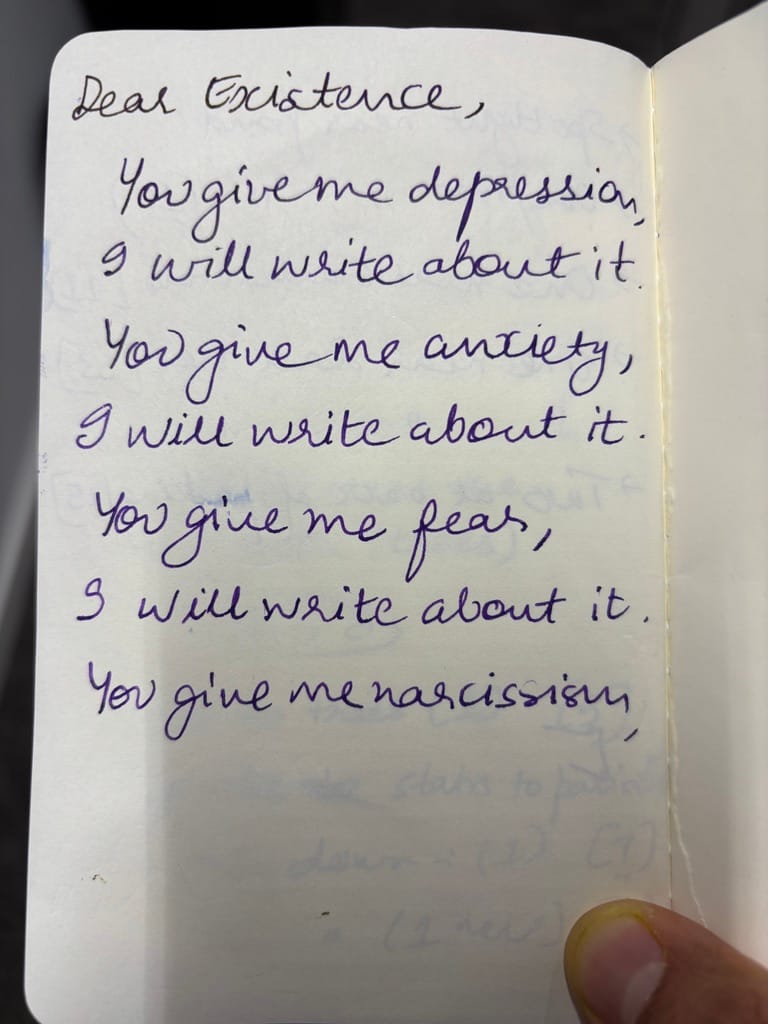 Dear Existence,
You give me depression,
I will write about it.
You give me anxiety,
I will write about it.
You give me fear,
I will write about it.
You give me narcissism,